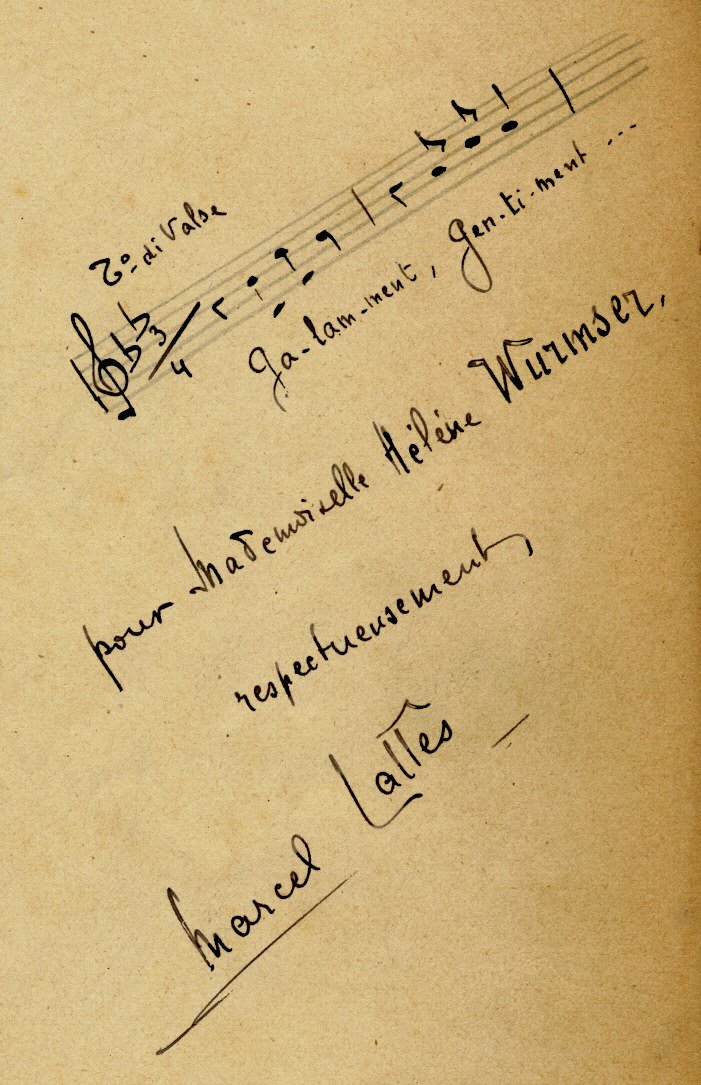 To di Valse
3
4
Ga-lam-ment, Gen-ti-ment ...
pour Mademoiselle Hélène Wurmser,
respectueusement,
Marcel Lattès